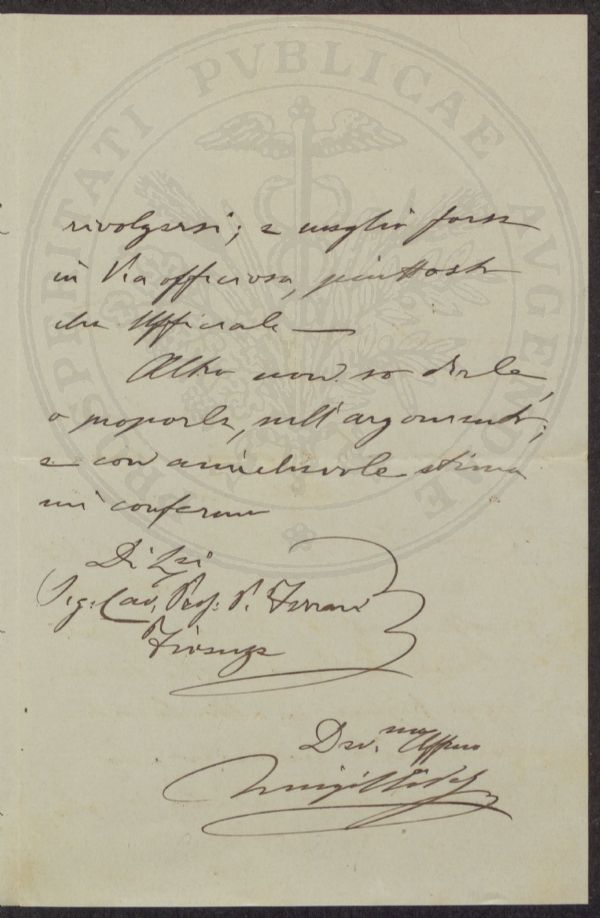 PROSPERITATI PVBLICAE AVGENDAE
rivolgersi; e meglio forse
in Via officiosa, piuttosto
che Ufficiale —
Altro non so dirle,
o proporle, sull'argomento;
e con amichevole stima
mi confermo
Di Lei
Sig: Cav. Prof. P. Ferrari
Firenze
Dev.mo Affmo
Luigi